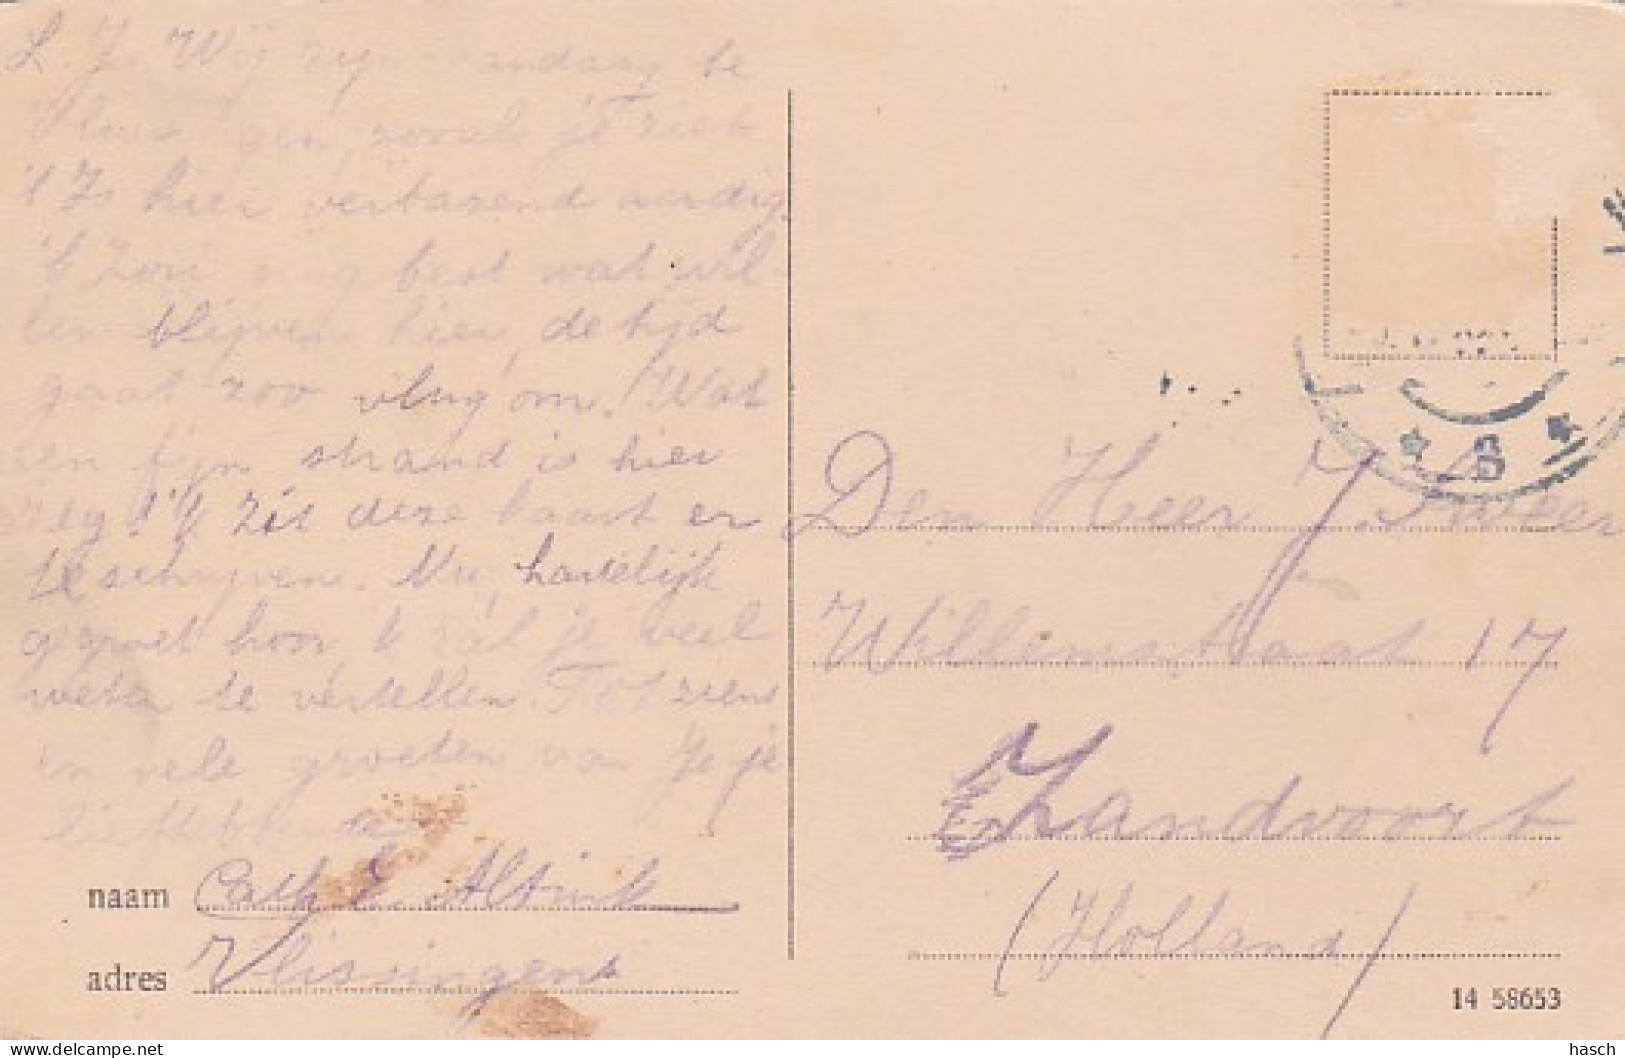 L. J. Wij zijn vandaag te
gen, zooals je ziet
't Is hier verbazend aardig.
'k zou nog best wat wil-
len blijven hier, de tijd
gaat zoo vlug om. Wat
een fijn strand is hier
zeg! 'k zit deze kaart er
te schrijven. Nu, hartelijk
gegroet hoor 'k zal je veel
weten te vertellen. Tot ziens
en vele groeten van je je
Cath. Altink
Vlissingen
naam
adres
Den Heer J.
Willemstraat 17
Zandvoort
(Holland)
14 58653
hasch
delcampe.net